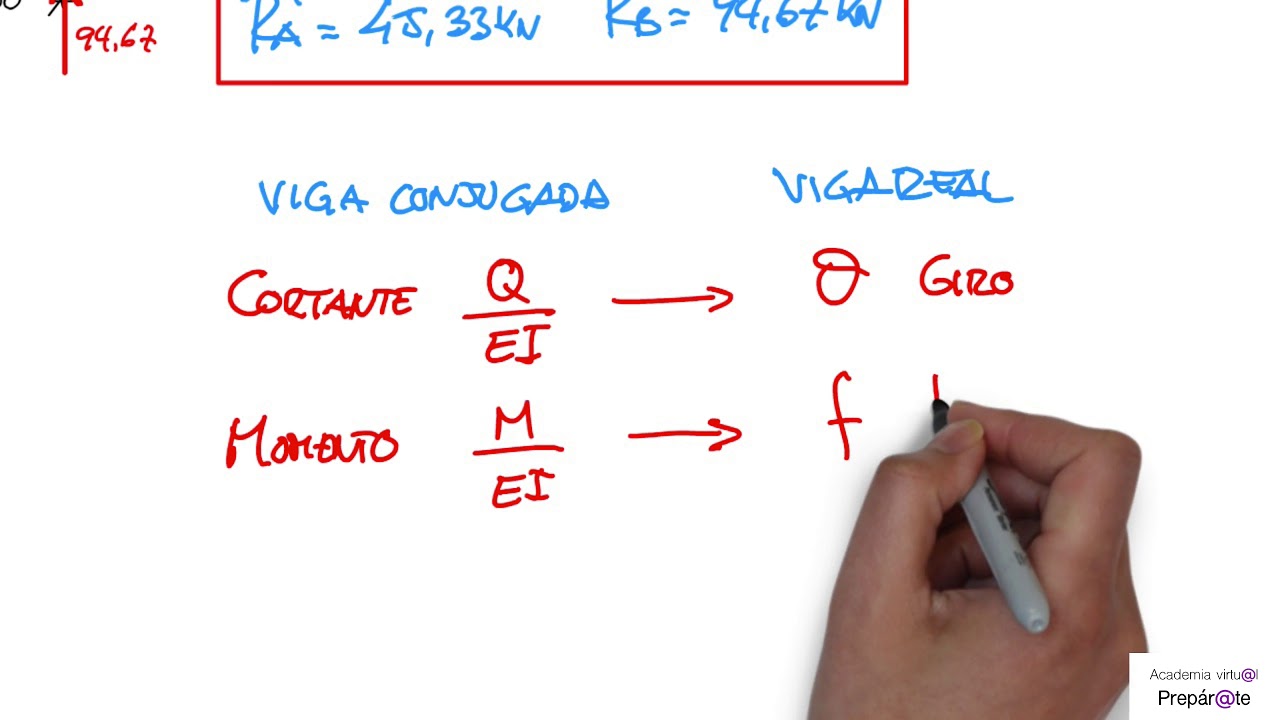 94,67
RA = 45,33 KN RB = 94,67 KN
VIGA CONJUGADA VIGA REAL
CORTANTE Q/EI → θ GIRO
MOMENTO M/EI → f
Academia virtu@l
Prepár@te